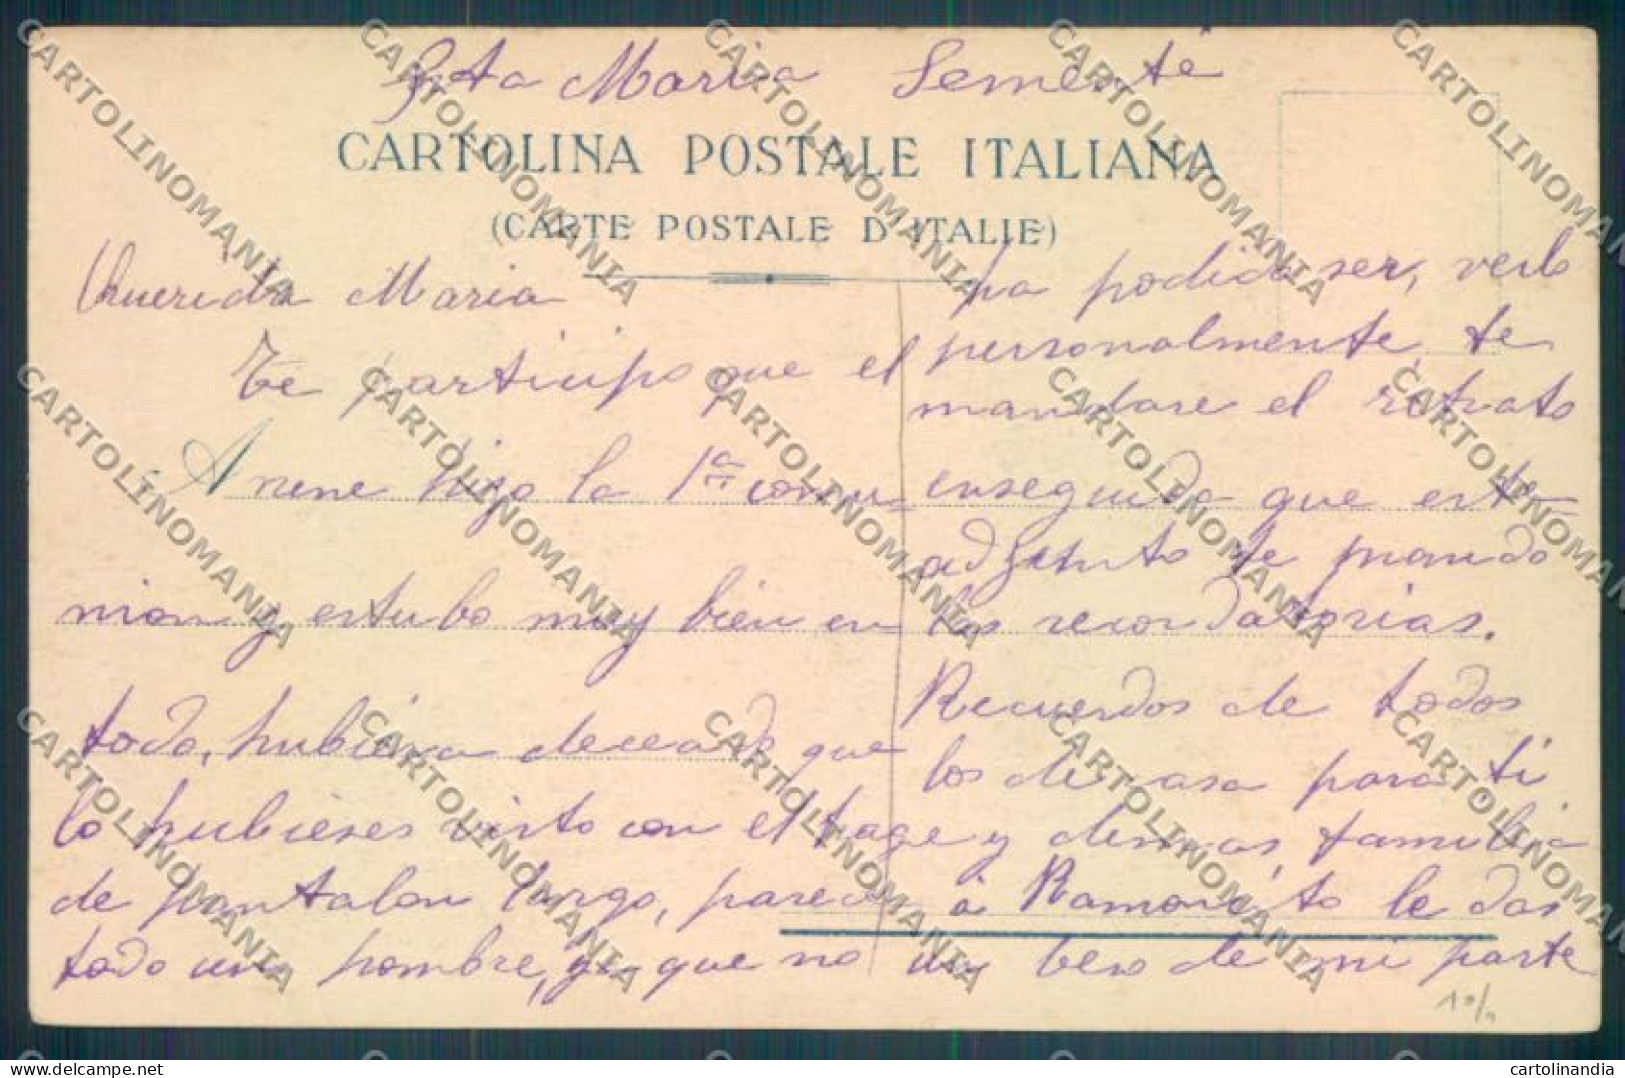 Srta Maria Sementé
CARTOLINA POSTALE ITALIANA
(CARTE POSTALE D'ITALIE)
Querida Maria
Te participo que el
nene hizo la 1ª comu=
nion y estubo muy bien en
todo, hubiera deceado que
lo hubieses visto con el trage
de pantalon largo, parecia
todo un hombre, ya que no
ha podido ser, verlo
personalmente, te
mandare el retrato
enseguida que este=
adjunto te mando
los recordatorias.
Recuerdos de todos
los de casa para ti
y demas familia
a Ramonito le das
un beso de mi parte
10/
CARTOLINOMANIA
delcampe.net
cartolinandia